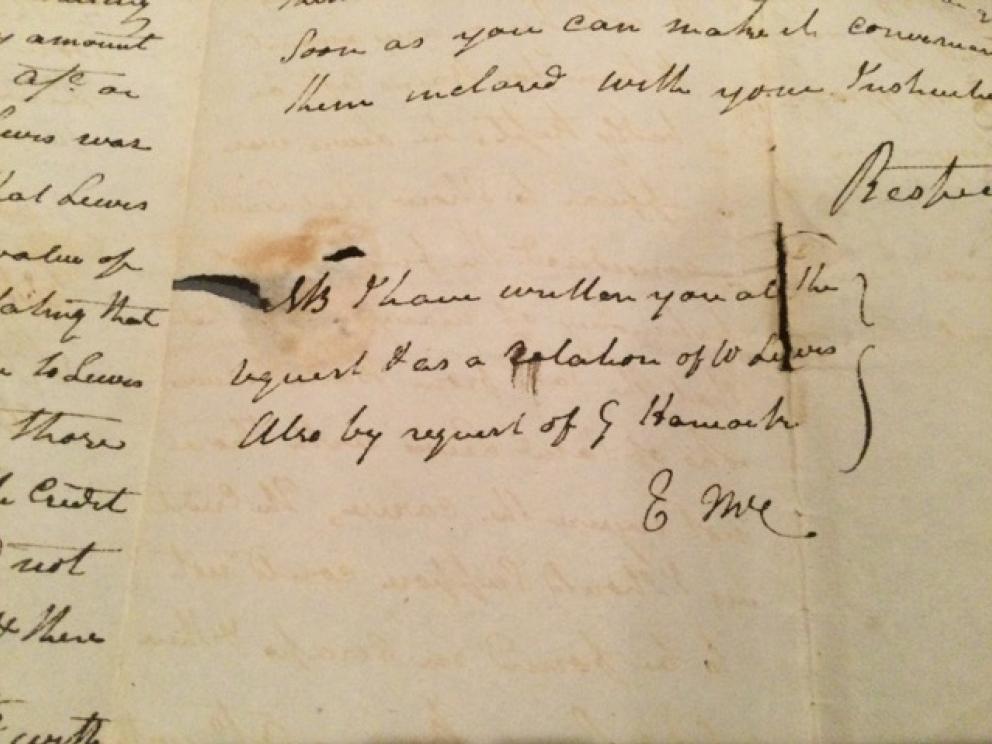 amount
a/c or
Lewis was
that Lewis
value of
stating that
to Lewis
those
Credit
not
& there
with
Soon as you can make it conven
them inclosed with your Instructi
Respec
NB I have written you at the
request & as a relation of W Lewis
Also by request of G
E Mc